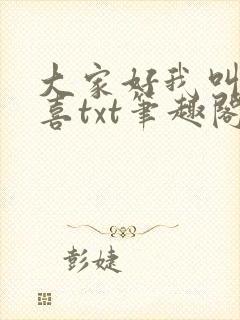 大家好我叫
喜txt笔趣阁
彭婕